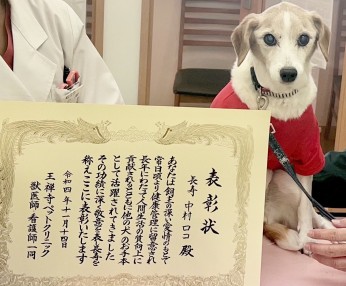 表彰状
長寿 中村 ロコ 殿
あなたは飼主の深い愛情のもとで
常日頃より健康管理に留意され
長年にわたる人間生活の質向上に
貢献されるとともに他の犬のお手本
として活躍されてきました
その功績に深い敬意を表し長寿を
称えここに表彰いたします
令和四年十一月十四日
王禅寺ペットクリニック
獣医師 看護師一同